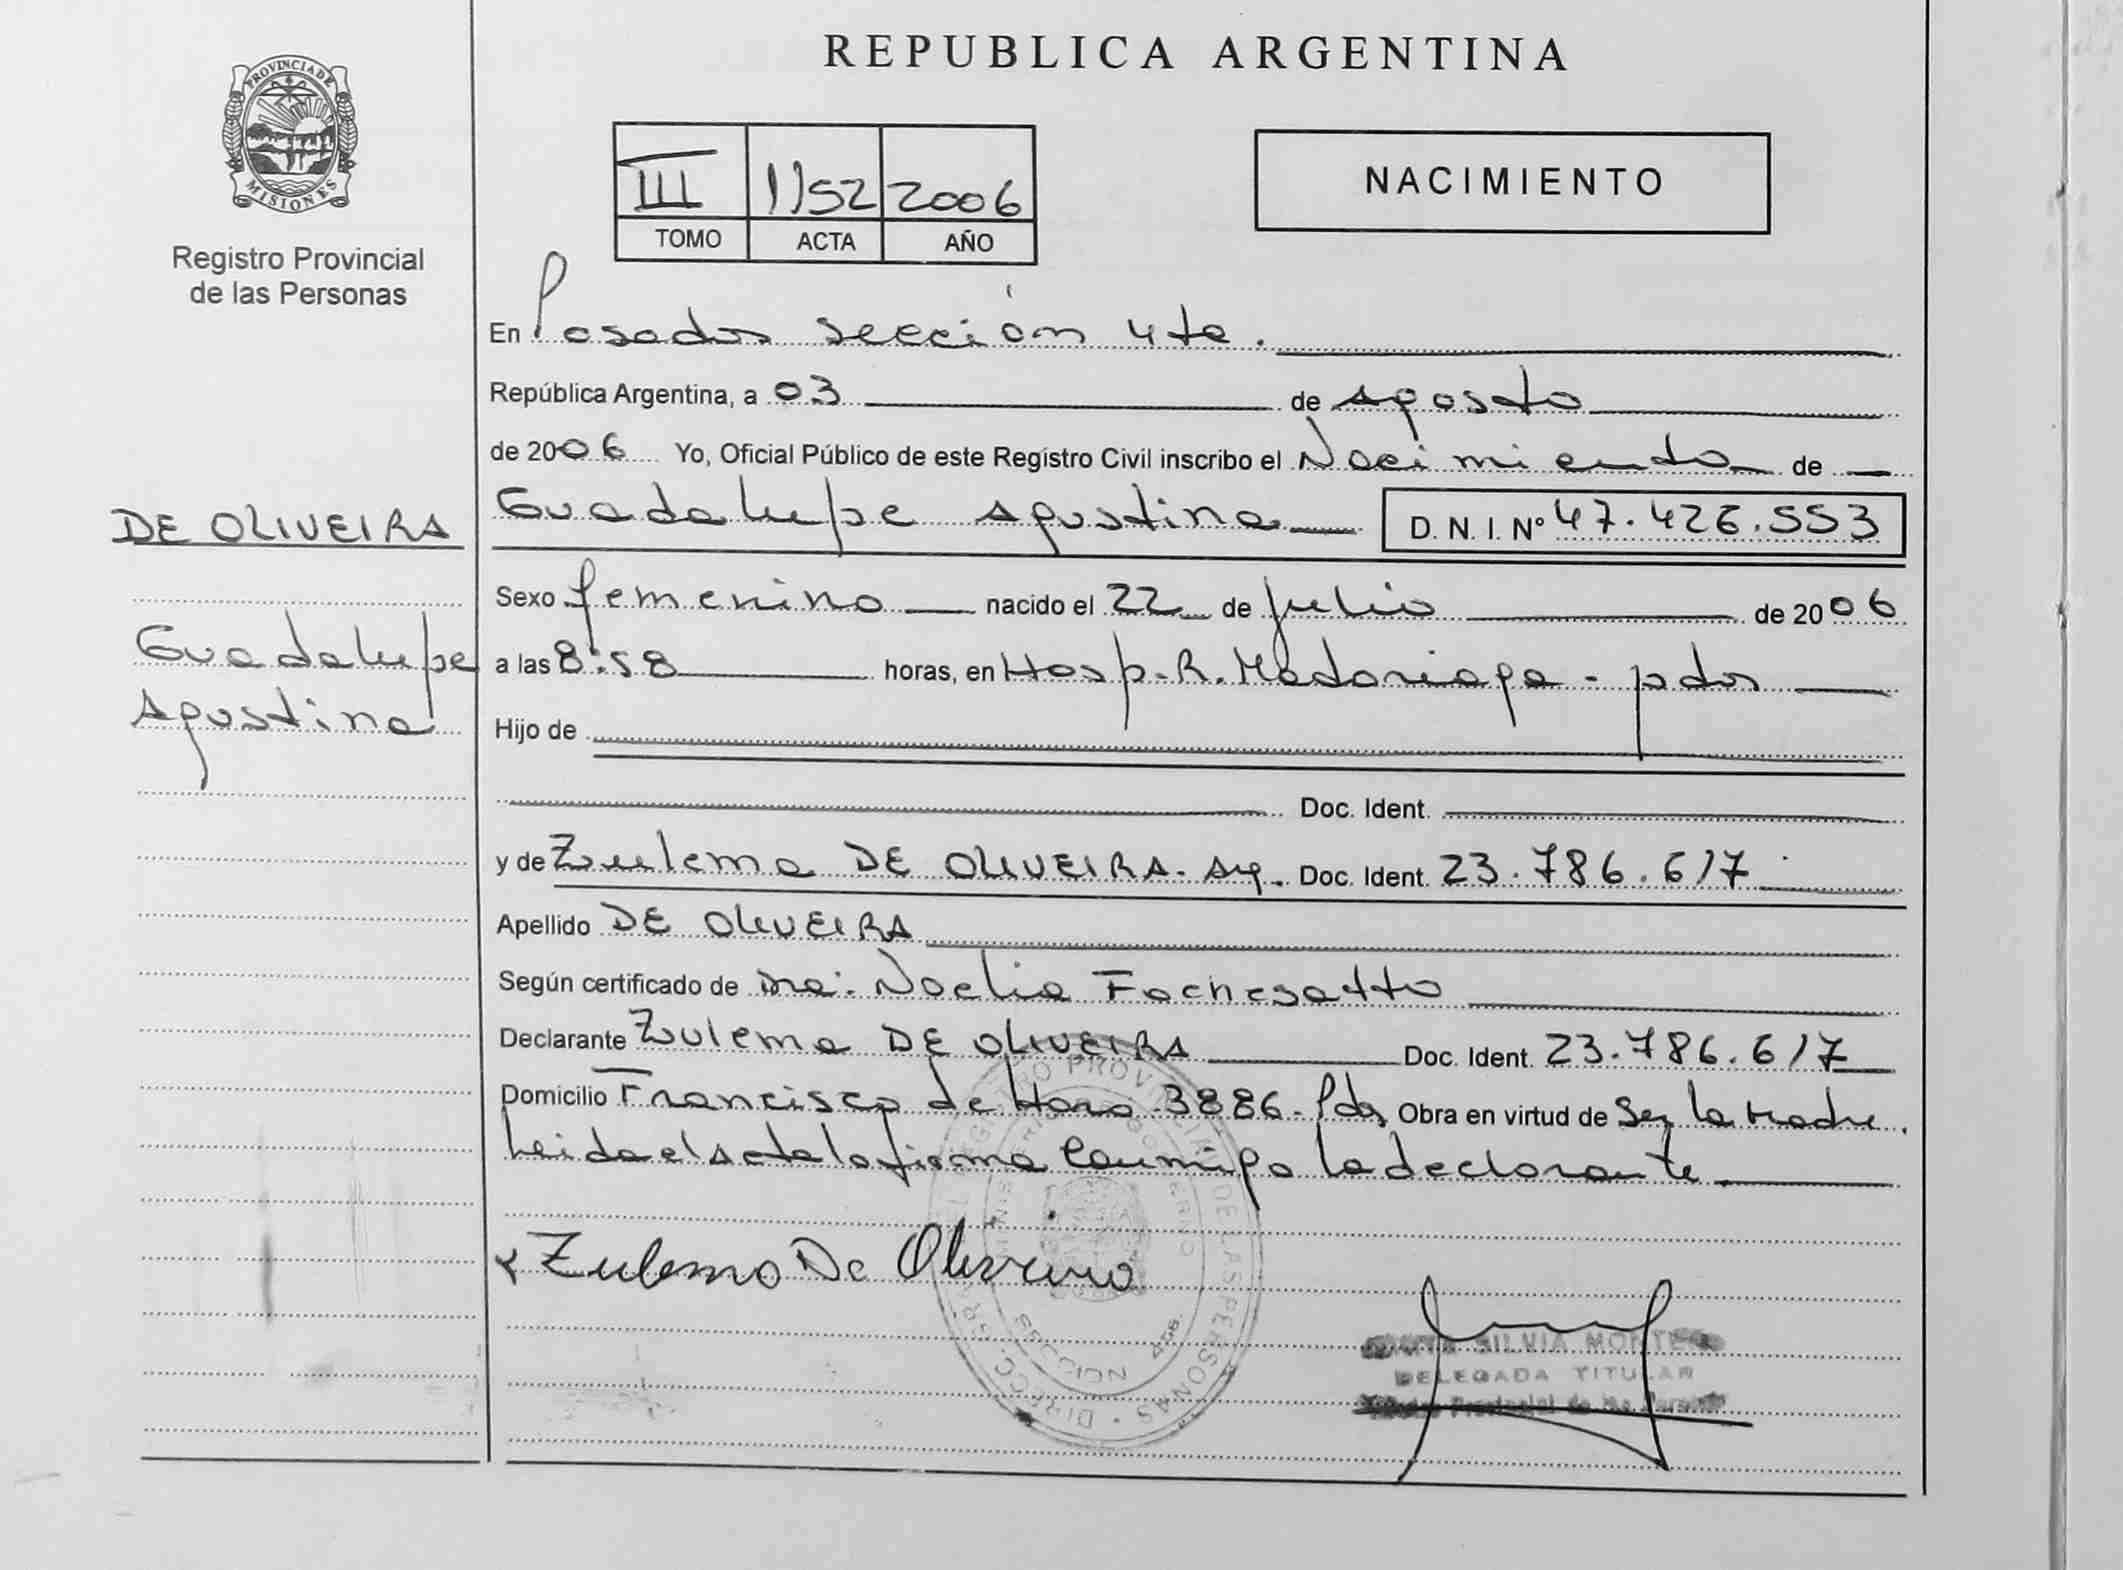 REPUBLICA ARGENTINA
PROVINCIA DE MISIONES
Registro Provincial
de las Personas
III 1152 2006
TOMO ACTA AÑO
NACIMIENTO
En Posadas sección 4ta.
República Argentina, a 03 de agosto
de 2006 Yo, Oficial Público de este Registro Civil inscribo el Nacimiento de
DE OLIVEIRA
Guadalupe Agustina
Guadalupe Agustina D. N. I. Nº 47.426.553
Sexo femenino nacido el 22 de julio de 2006
a las 8:58 horas, en Hosp. R. Madariaga - pdas
Hijo de
Doc. Ident.
y de Zulema DE OLIVEIRA. Arg. Doc. Ident. 23.786.617
Apellido DE OLIVEIRA
Según certificado de Dra: Noelia Fachesatto
Declarante Zulema DE OLIVEIRA Doc. Ident. 23.786.617
Domicilio Francisco de Haro 3886 - Pdas Obra en virtud de Ser la Madre.
Leida el acta la firma conmigo la declarante.
x Zulema De Oliveira
DIRECC. GRAL. DEL REGISTRO PROVINCIAL DE LAS PERSONAS
MINISTERIO DE GOBIERNO
SILVIA MONTE
DELEGADA TITULAR
Provincial de las Personas